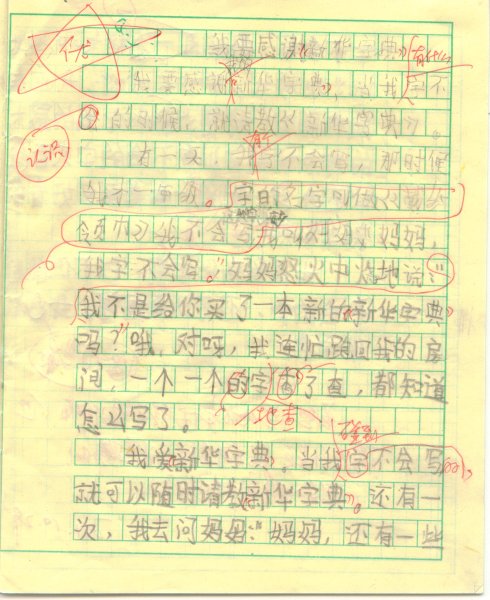 优
我要感谢《新华字典》
我要感谢《新华字典》,当我字不
会的时候,就请教《新华字典》。
认识
有一天,我字不会写,那时候
我才一年级。字的
我不会写我叫妈妈,
我字不会写。"妈妈怒火中烧地说:"
我不是给你买了一本新的《新华字典》
吗?"哦,对呀,我连忙跑回我的房
间,一个一个的字查了查,都知道
地查
怎么写了。
我爱《新华字典》。当我字不会写
就可以随时请教《新华字典》。还有一
次,我去问妈妈:"妈妈,还有一些